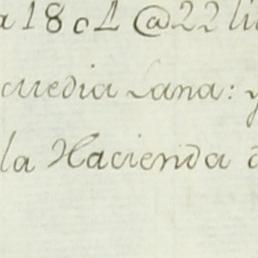 a 1801 @22 li
media Lana: y
la Hacienda d